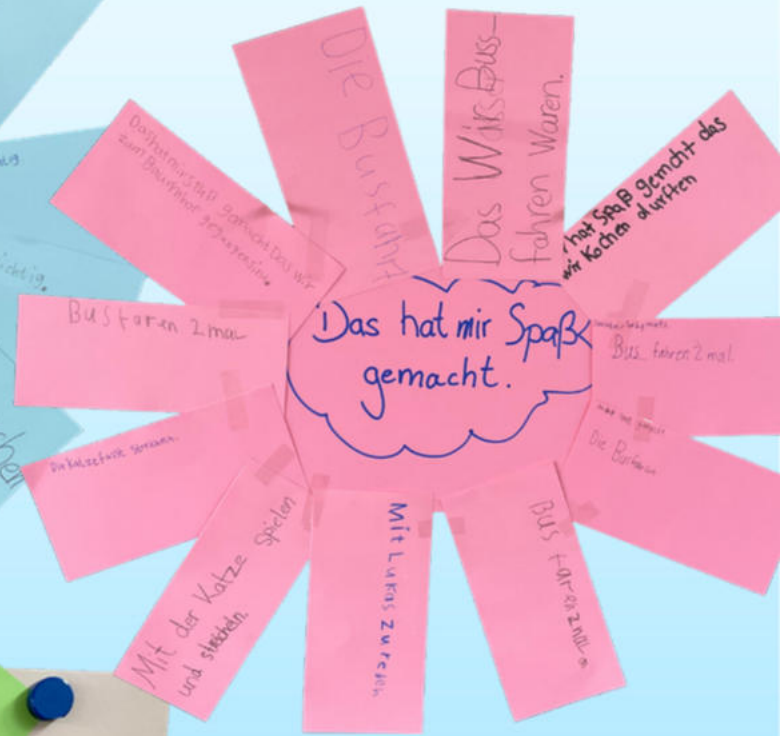 Das hat mir Spaß
gemacht.
Die Busfahrt
Das Wirs Buss-
fahren Waren.
hat Spaß gemcht das
wir Kochen durften
Bus fahren 2 mal
Die Busfaren
Bus faren 2 mal
Mit Lukas zu reden
Mit der Katze spielen
und streicheln.
Die Katze
Bus faren 2 mal
Das hat mir Spaß gemacht Das wir
zum Bauernhof gegangen sind.